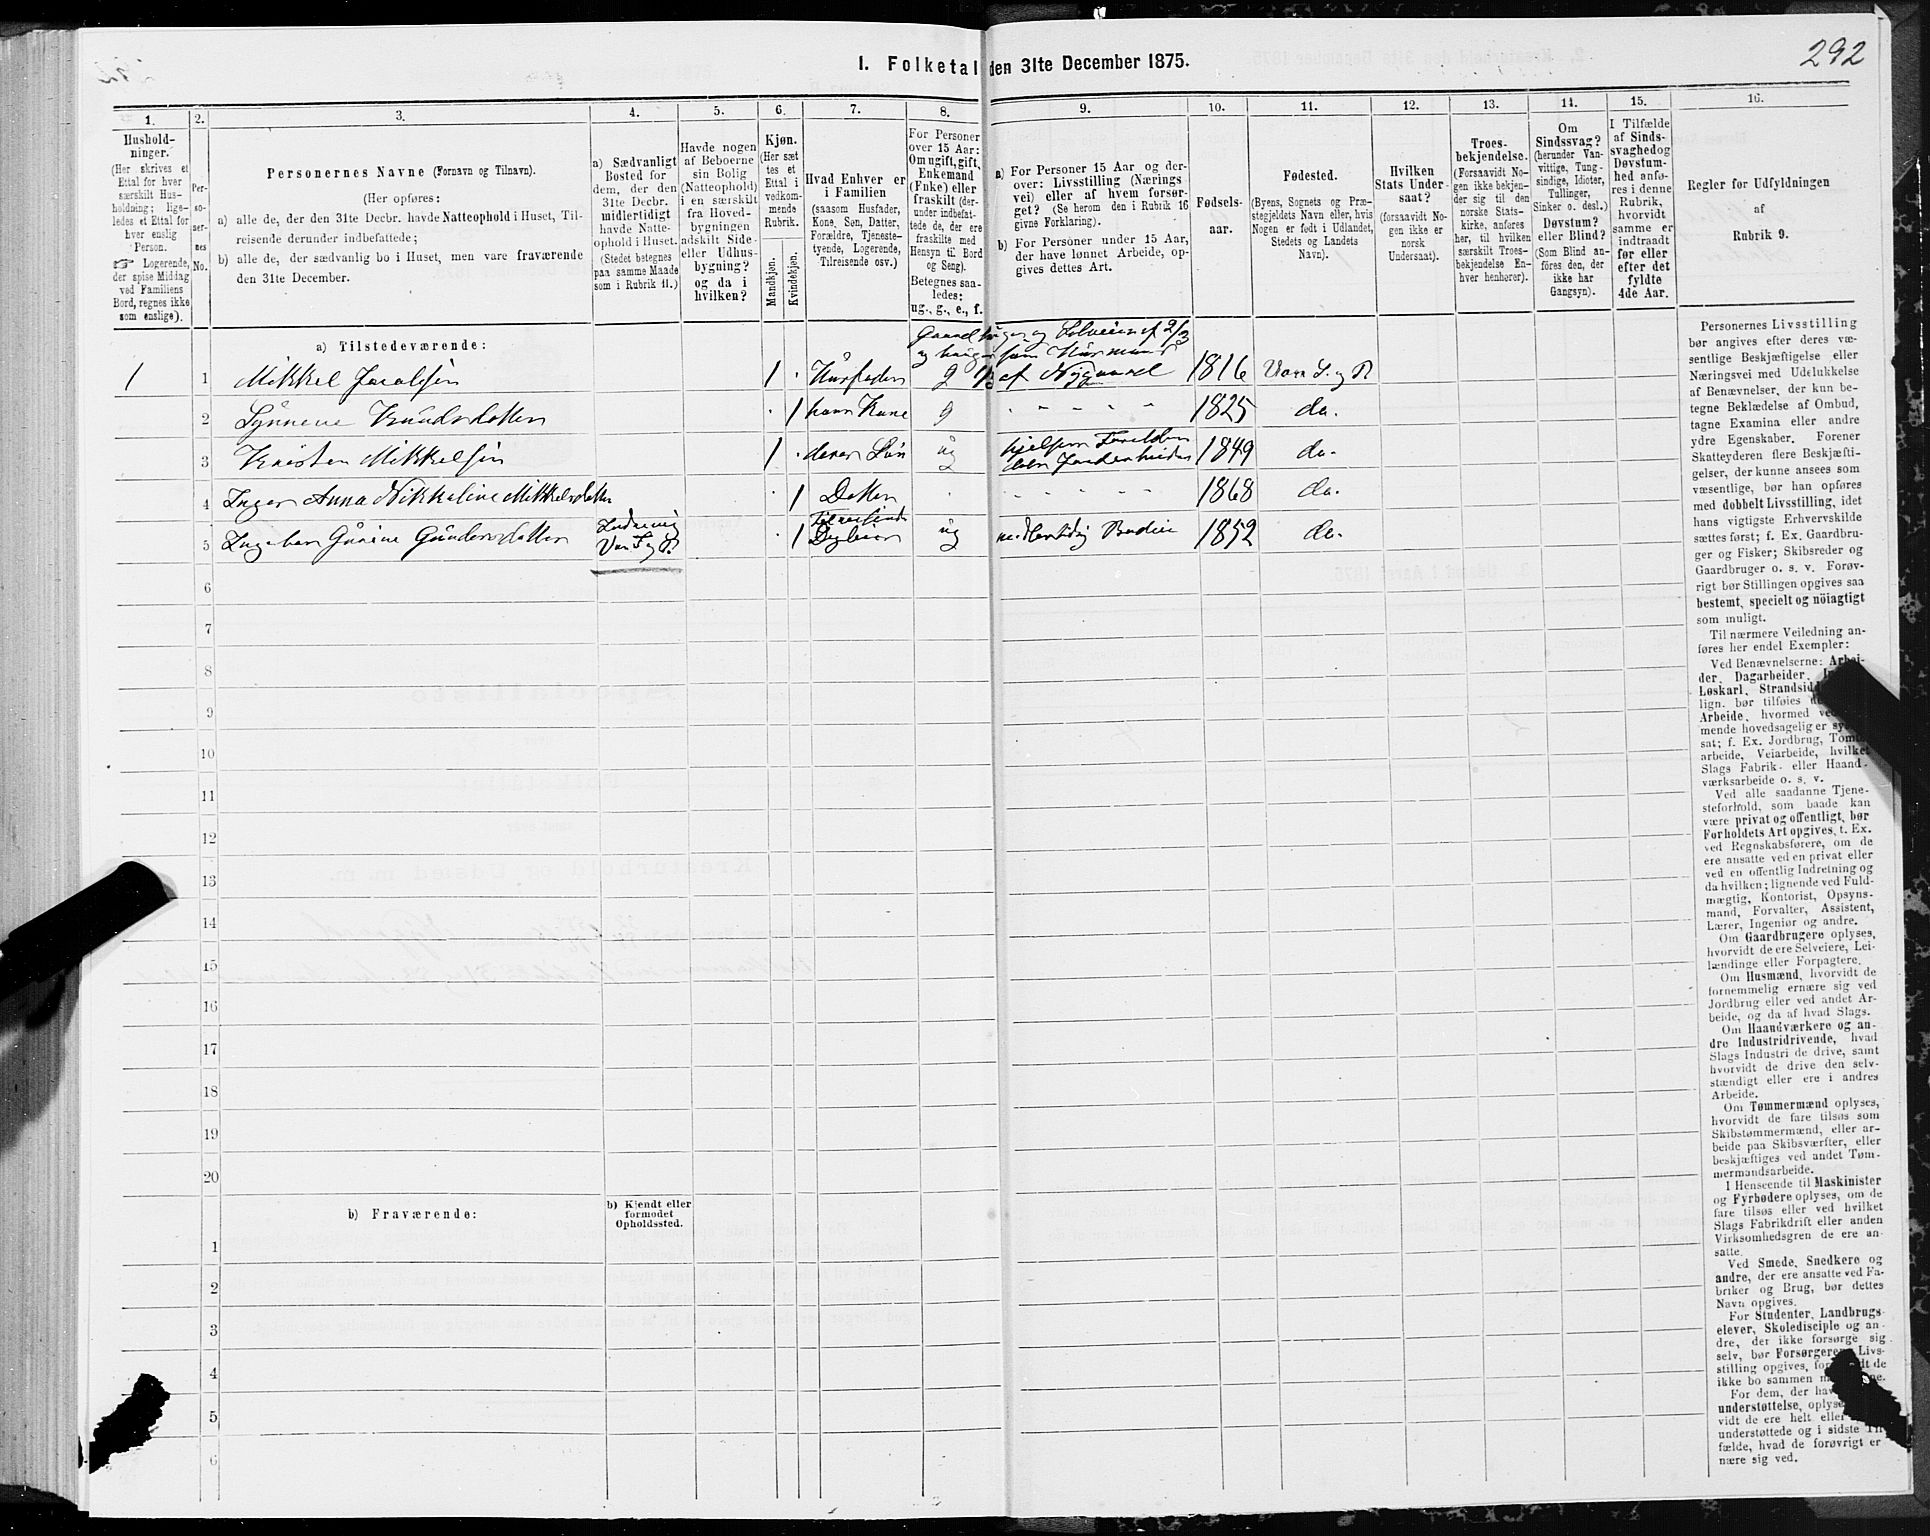 292
I. Folketal den 31te December 1875.
1.
Hushold-
ninger.
(Her skrives et
Ettal for hver
særskilt Hus-
holdning; lige-
ledes et Ettal for
hver enslig
Person.
☞ Logerende,
der spise Middag
ved Familiens
Bord, regnes ikke
som enslige).
2.
Per-
so-
ner-
nes
No.
3.
Personernes Navne (Fornavn og Tilnavn).
(Her opføres:
a) alle de, der den 31te Decbr. havde Natteophold i Huset, Til-
reisende derunder indbefattede;
b) alle de, der sædvanlig bo i Huset, men vare fraværende
den 31te December.
4.
a) Sædvanligt
Bosted for
dem, der den
31te Decbr.
midlertidigt
havde Natte-
ophold i Huset.
(Stedet betegnes
paa samme Maade
som i Rubrik 11.)
5.
Havde nogen
af Beboerne
sin Bolig
(Natteophold)
i en særskilt
fra Hoved-
bygningen
adskilt Side-
eller Udhus-
bygning?
og da i
hvilken?
6.
Kjøn.
(Her sæt-
tes et
Ettal i
vedkom-
mende
Rubrik.
Mandkjøn.
Kvindekjøn.
7.
Hvad Enhver er
i Familien
(saasom Husfader,
Kone, Søn, Datter,
Forældre, Tjeneste-
tyende, Logerende,
Tilreisende osv.)
8.
For Personer
over 15 Aar:
Om ugift, gift,
Enkemand
(Enke) eller
fraskilt (der-
under indbefat-
tede de, der ere
fraskilte med
Hensyn til Bord
og Seng).
Betegnes saa-
ledes:
ug., g., e., f.
9.
a) For Personer 15 Aar og der-
over: Livsstilling (Nærings-
vei) eller af hvem forsør-
get? (Se herom den i Rubrik 16
givne Forklaring).
b) For Personer under 15 Aar,
der have lønnet Arbeide, op-
gives dettes Art.
10.
Fødsels-
aar.
11.
Fødested.
(Byens, Sognets og Præ-
stegjeldets Navn eller, hvis
Nogen er født i Udlandet,
Stedets og Landets
Navn).
12.
Hvilken
Stats Under-
saat?
(forsaavidt No-
gen ikke er
norsk
Undersaat).
13.
Troes-
bekjendelse.
(Forsaavidt No-
gen ikke bekjen-
der sig til den
norske Stats-
kirke, anføres
her, til hvilken
særskilt Troes-
bekjendelse En-
hver henhører).
14.
Om
Sindssvag?
(herunder Van-
vittige, Tung-
sindige, Idioter,
Tullinger,
Sinker o. desl.)
Døvstum?
eller Blind?
(Som Blind an-
føres den, der
ikke har
Gangsyn).
15.
I Tilfælde
af Sinds-
svaghed og
Døvstum-
hed anfø-
res i denne
Rubrik,
hvorvidt
samme er
indtraadt
før eller
efter det
fyldte
4de Aar.
16.
Regler for Udfyldningen
af
Rubrik 9.
a) Tilstedeværende:
Gaardbruger og Selveier af 2/3
og bruger som Husmand
1 1 Mikkel Jacobsen 1 Husfader g 1/3 af Nygaard 1816 Vans S. og P
2 Synneve Knudsdatter 1 hans Kone g 1825 do.
3 Kristen Mikkelsen 1 deres Søn ug hjelper Forældre 1849 do.
4 Inger Anna Nikkoline Mikkelsdatter 1 Datter 1868 do.
5 Ingebor Gurine Gundersdatter Vans S og P. 1 ug 1852 do.
6
7
8
9
10
11
12
13
14
15
16
17
18
19
20
b) Fraværende:
b) Kjendt eller
formodet
Opholdssted.
1
2
3
4
5
6
Personernes Livsstilling
bør angives efter deres væ-
sentlige Beskjæftigelse eller
Næringsvei med Udelukkelse
af Benævnelser, der kun be-
tegne Beklædelse af Ombud,
tagne Examina eller andre
ydre Egenskaber. Forener
Skatteyderen flere Beskjæfti-
gelser, der kunne ansees som
væsentlige, bør han opføres
med dobbelt Livsstilling, idet
hans vigtigste Erhvervskilde
sættes først; f. Ex. Gaardbru-
ger og Fisker; Skibsreder og
Gaardbruger o. s. v. Forøv-
rigt bør Stillingen opgives saa
bestemt, specielt og nöiagtigt
som muligt.
Til nærmere Veiledning an-
føres her endel Exempler:
Ved Benævnelserne: Arbei-
der, Dagarbeider,
Løskarl, Strandsid
lign. bør tilføies
Arbeide, hvormed
mende hovedsagelig er
sat; f. Ex. Jordbrug, Tomt-
arbeide, Veiarbeide, hvilket
Slags Fabrik- eller Haand-
værksarbeide o. s. v.
Ved alle saadanne Tjene-
steforhold, som baade kan
være privat og offentligt, bør
Forholdets Art opgives, t. Ex.
ved Regnskabsførere, om de
ere ansatte ved en privat eller
ved en offentlig Indretning og
da hvilken; lignende ved Fuld-
mægtig, Kontorist, Opsyns-
mand, Forvalter, Assistent,
Lærer, Ingeniør og andre.
Om Gaardbrugere oplyses,
hvorvidt de ere Selveiere, Lei-
lændinge eller Forpagtere.
Om Husmænd, hvorvidt de
fornemmelig ernære sig ved
Jordbrug eller ved andet Ar-
beide, og da af hvad Slags.
Om Haandværkere og an-
dre Industridrivende, hvad
Slags Industri de drive, samt
hvorvidt de drive den selv-
stændigt eller ere i andres
Arbeide.
Om Tømmermænd oplyses,
hvorvidt de fare tilsøs som
Skibstømmermænd, eller ar-
beide paa Skibsværfter, eller
beskjæftiges ved andet Tøm-
mermandsarbeide.
I Henseende til Maskinister
og Fyrbødere oplyses, om de
fare tilsøs eller ved hvilket
Slags Fabrikdrift eller anden
Virksomhedsgren de ere an-
satte.
Ved Smede, Snedkere og
andre, der ere ansatte ved Fa-
briker og Brug, bør dettes
Navn opgives.
For Studenter, Landbrugs-
elever, Skoledisciple og an-
dre, der ikke forsørge sig
selv, bør Forsørgerens Livs-
stilling opgives, de
ikke bo sammen
For dem, der
understøttelse,
vidt de ere helt eller
understøttede og i sidste Til-
fælde, hvad de forøvrigt er
nære sig ved.